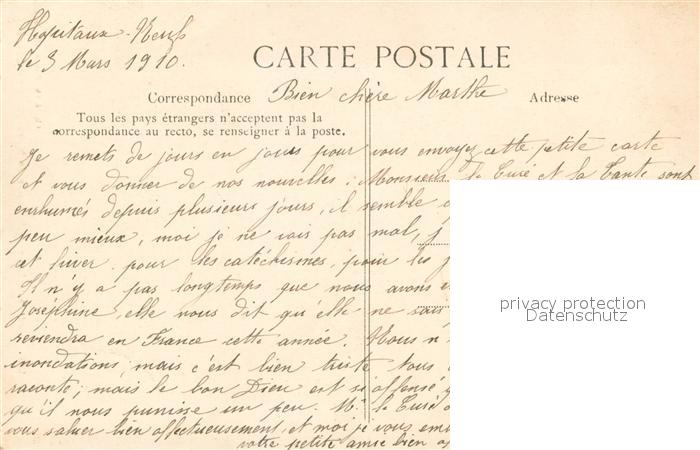 Hopitaux-Neufs
le 3 Mars 1910.
CARTE POSTALE
Correspondance Bien chère Marthe Adresse
Tous les pays étrangers n'acceptent pas la
correspondance au recto, se renseigner à la poste.
Je remets de jours en jours pour vous envoyer cette petite carte
et vous donner de nos nouvelles; Monsieur le Curé et la Tante sont
enrhumés depuis plusieurs jours, il semble
peu mieux, moi je ne vais pas mal, j
cet hiver pour les catéchismes, pour les
Il n'y a pas longtemps que nous avons
Joséphine, elle nous dit qu'elle ne sait
reviendra en France cette année. Nous n'
inondations, mais c'est bien triste tous
raconte; mais le bon Dieu est si offensé
qu'il nous punisse un peu. Mr le Curé
vous saluer bien affectueusement, et moi je vous em
votre petite amie bien
privacy protection
Datenschutz